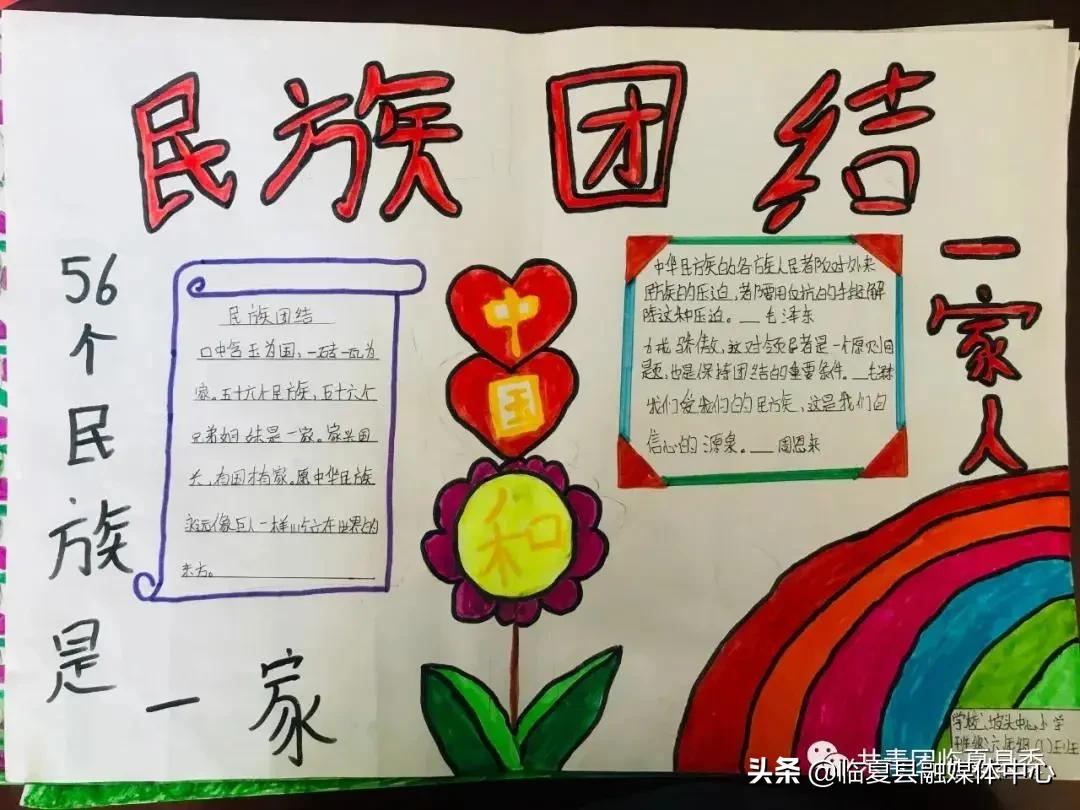 民族团结
一家人
56个民族是一家
民族团结
口中含玉为国，一砖一瓦为
家。五十六个民族，五十六个
兄弟姐妹是一家。家兴国
大，有国才有家。愿中华民族
永远像巨人一样屹立在世界的
东方。
中
国
和
中华民族的各族人民都反对外来
民族的压迫，都要用反抗的手段解
除这种压迫。——毛泽东
力戒骄傲，这对领导者是一个原则问
题，也是保持团结的重要条件。——毛
我们爱我们的民族，这是我们自
信心的源泉。——周恩来
学校：坡头中心小学
班级：六年级(1)班
共青团临夏县委
头条@临夏县融媒体中心